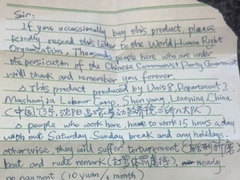 Sir:
If you occassionally buy this product, please
kindly resend this letter to the World Human Right
Organization. Thousands people here who are under
the persicution of the Chinese Communist Party Government
will thank and remember you forever.
This product produced by Unit 8, Department 2,
Masanjia Labour Camp, Shenyang, Liaoning, China
(中国,辽宁,沈阳,马三家劳动教养院二所八大队)
people who work here have to work 15 hours a day
with out Saturday, Sunday break and any holidays.
otherwise, they will suffer torturement
beat and rude remark nearly
no payment (10 yuan / month)